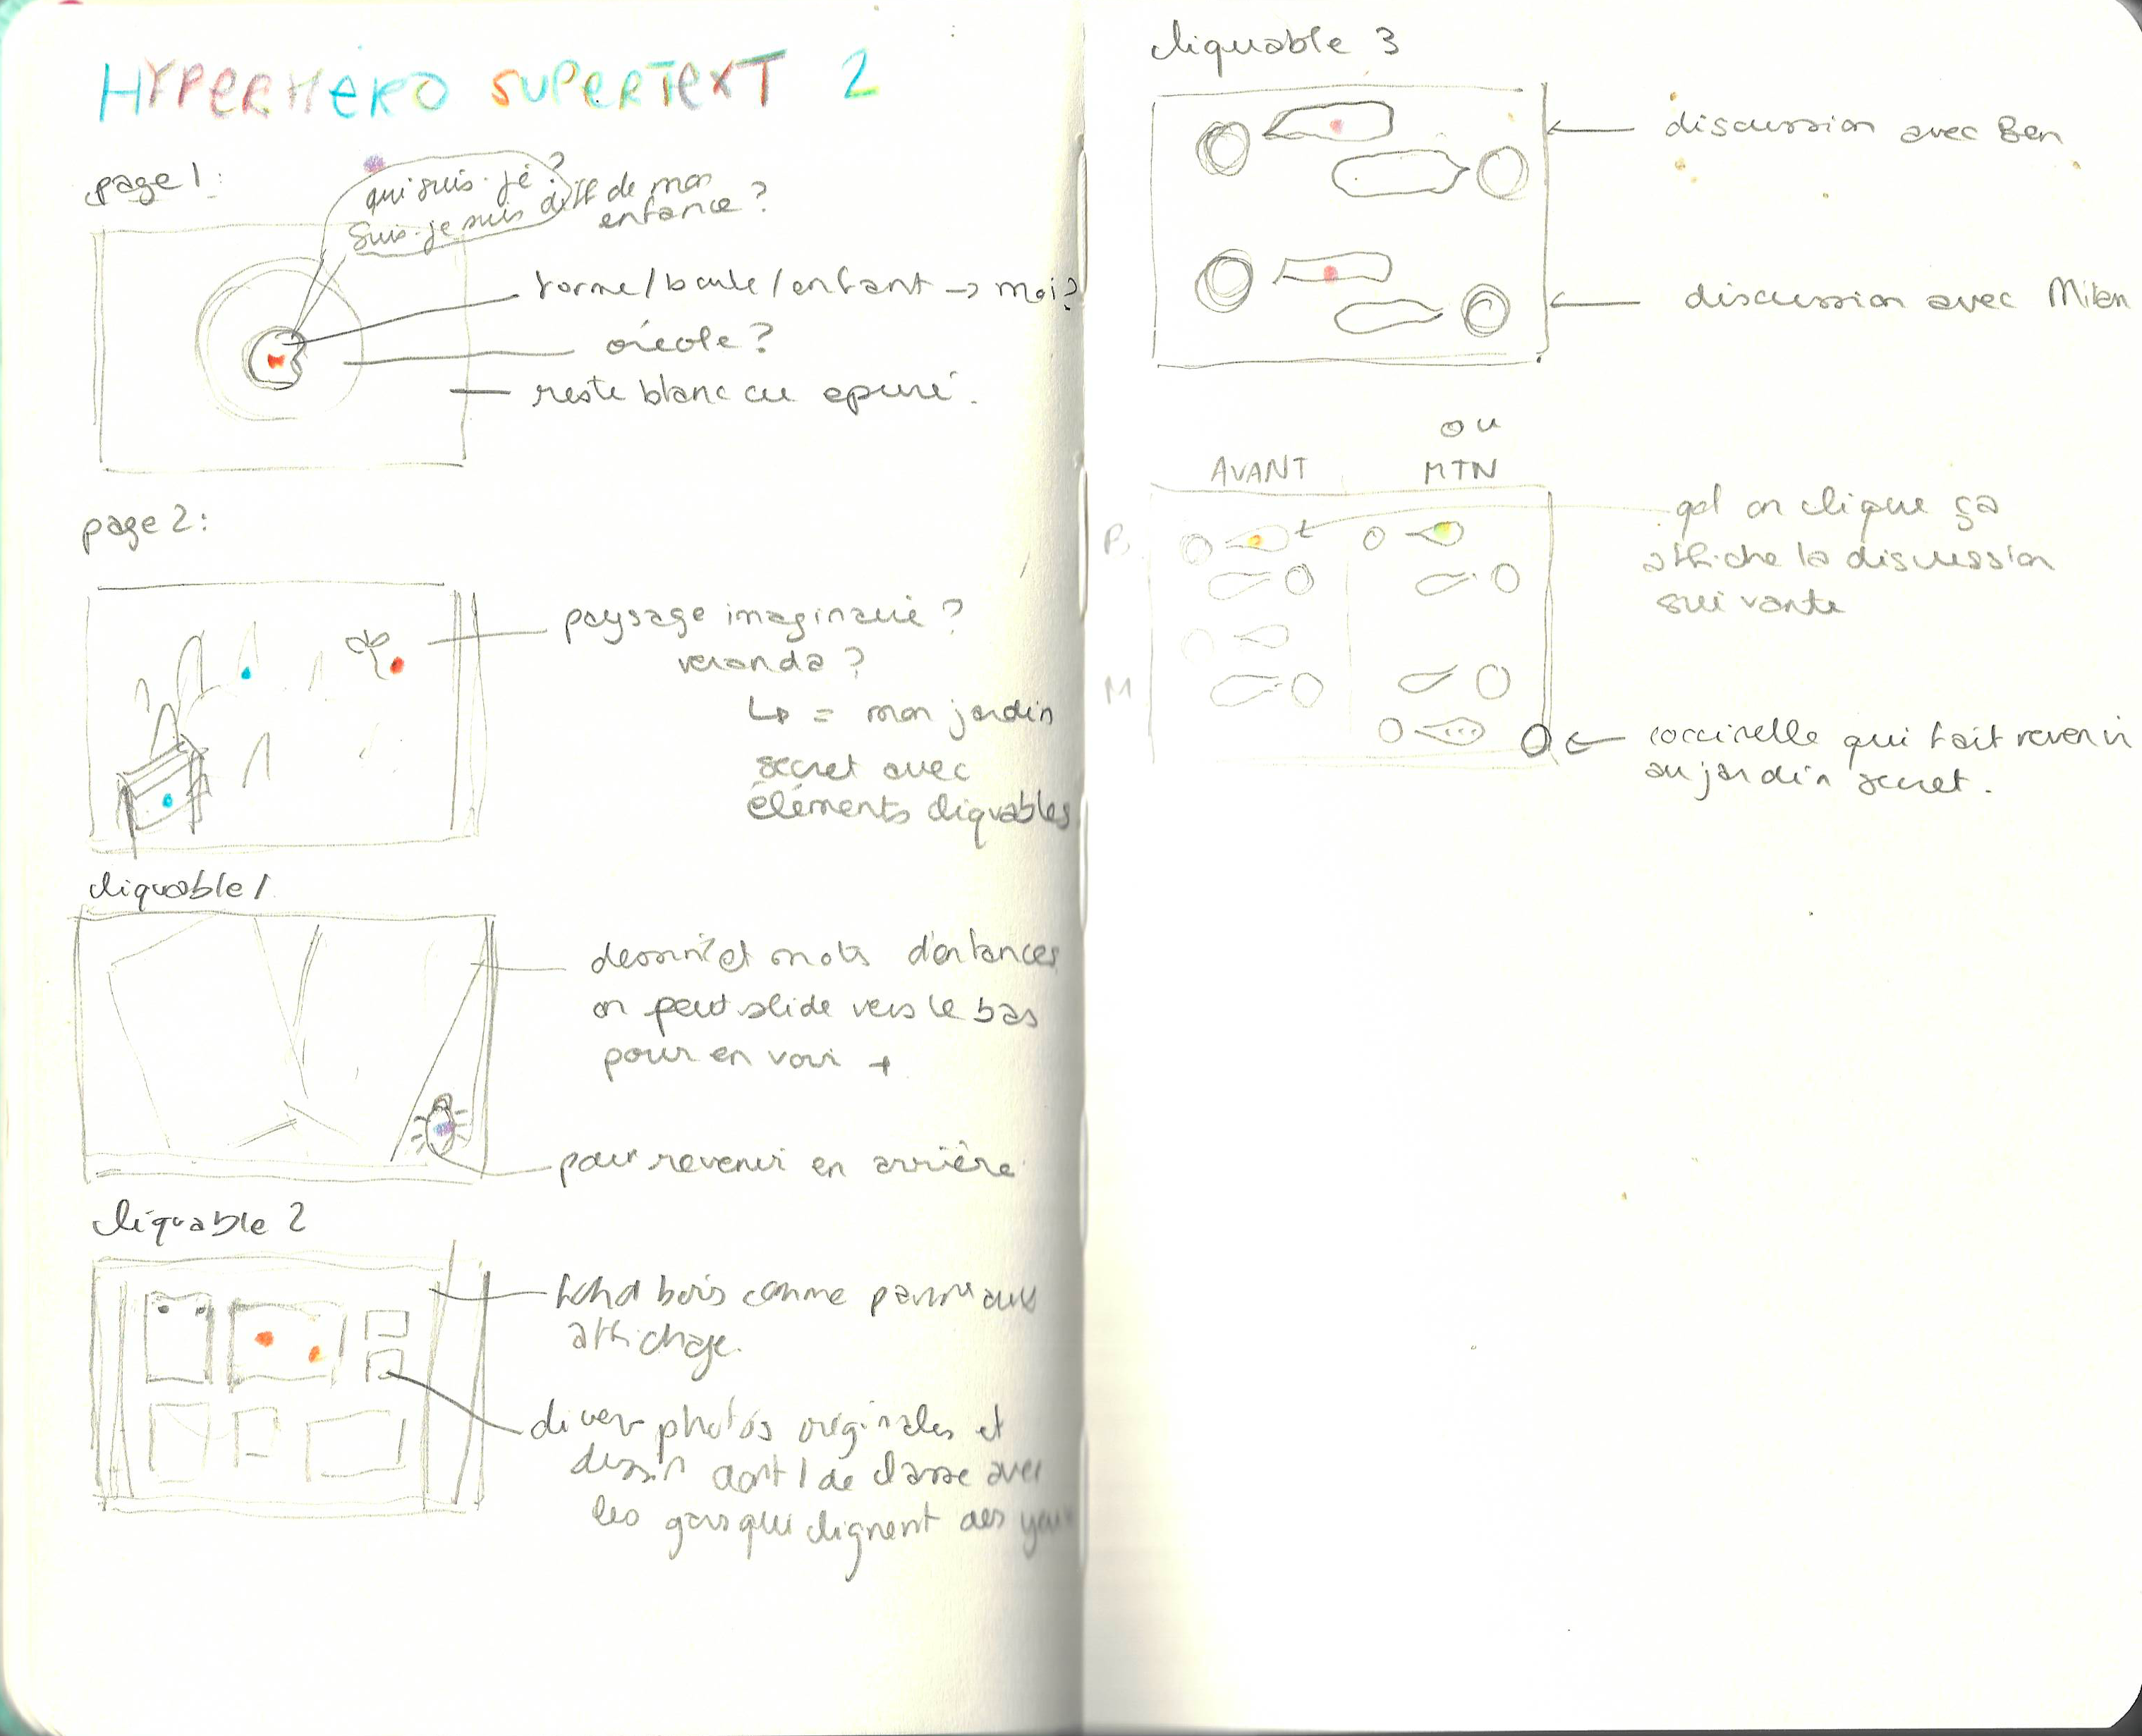 HYPERHERO SUPERTEXT 2
page 1 :
qui suis-je ?
suis-je suis diff de mon
enfance ?
forme/boule/enfant → moi ?
reste blanc ou epuré.
page 2 :
paysage imaginaire ?
veranda ?
↳ = mon jardin
secret avec
éléments cliquables
cliquable 1
dessin et mots d'enfances
on peut slide vers le bas
pour en voir +
pour revenir en arrière
cliquable 2
fond bois comme panneaux
affichage.
divers photos originales et
dessin dont 1 de classe avec
les gars qui clignent des yeux
cliquable 3
discussion avec Ben
discussion avec Milan
ou
AVANT MTN
B
M
qd on clique ça
affiche la discussion
suivante
coccinelle qui fait revenir
au jardin secret.